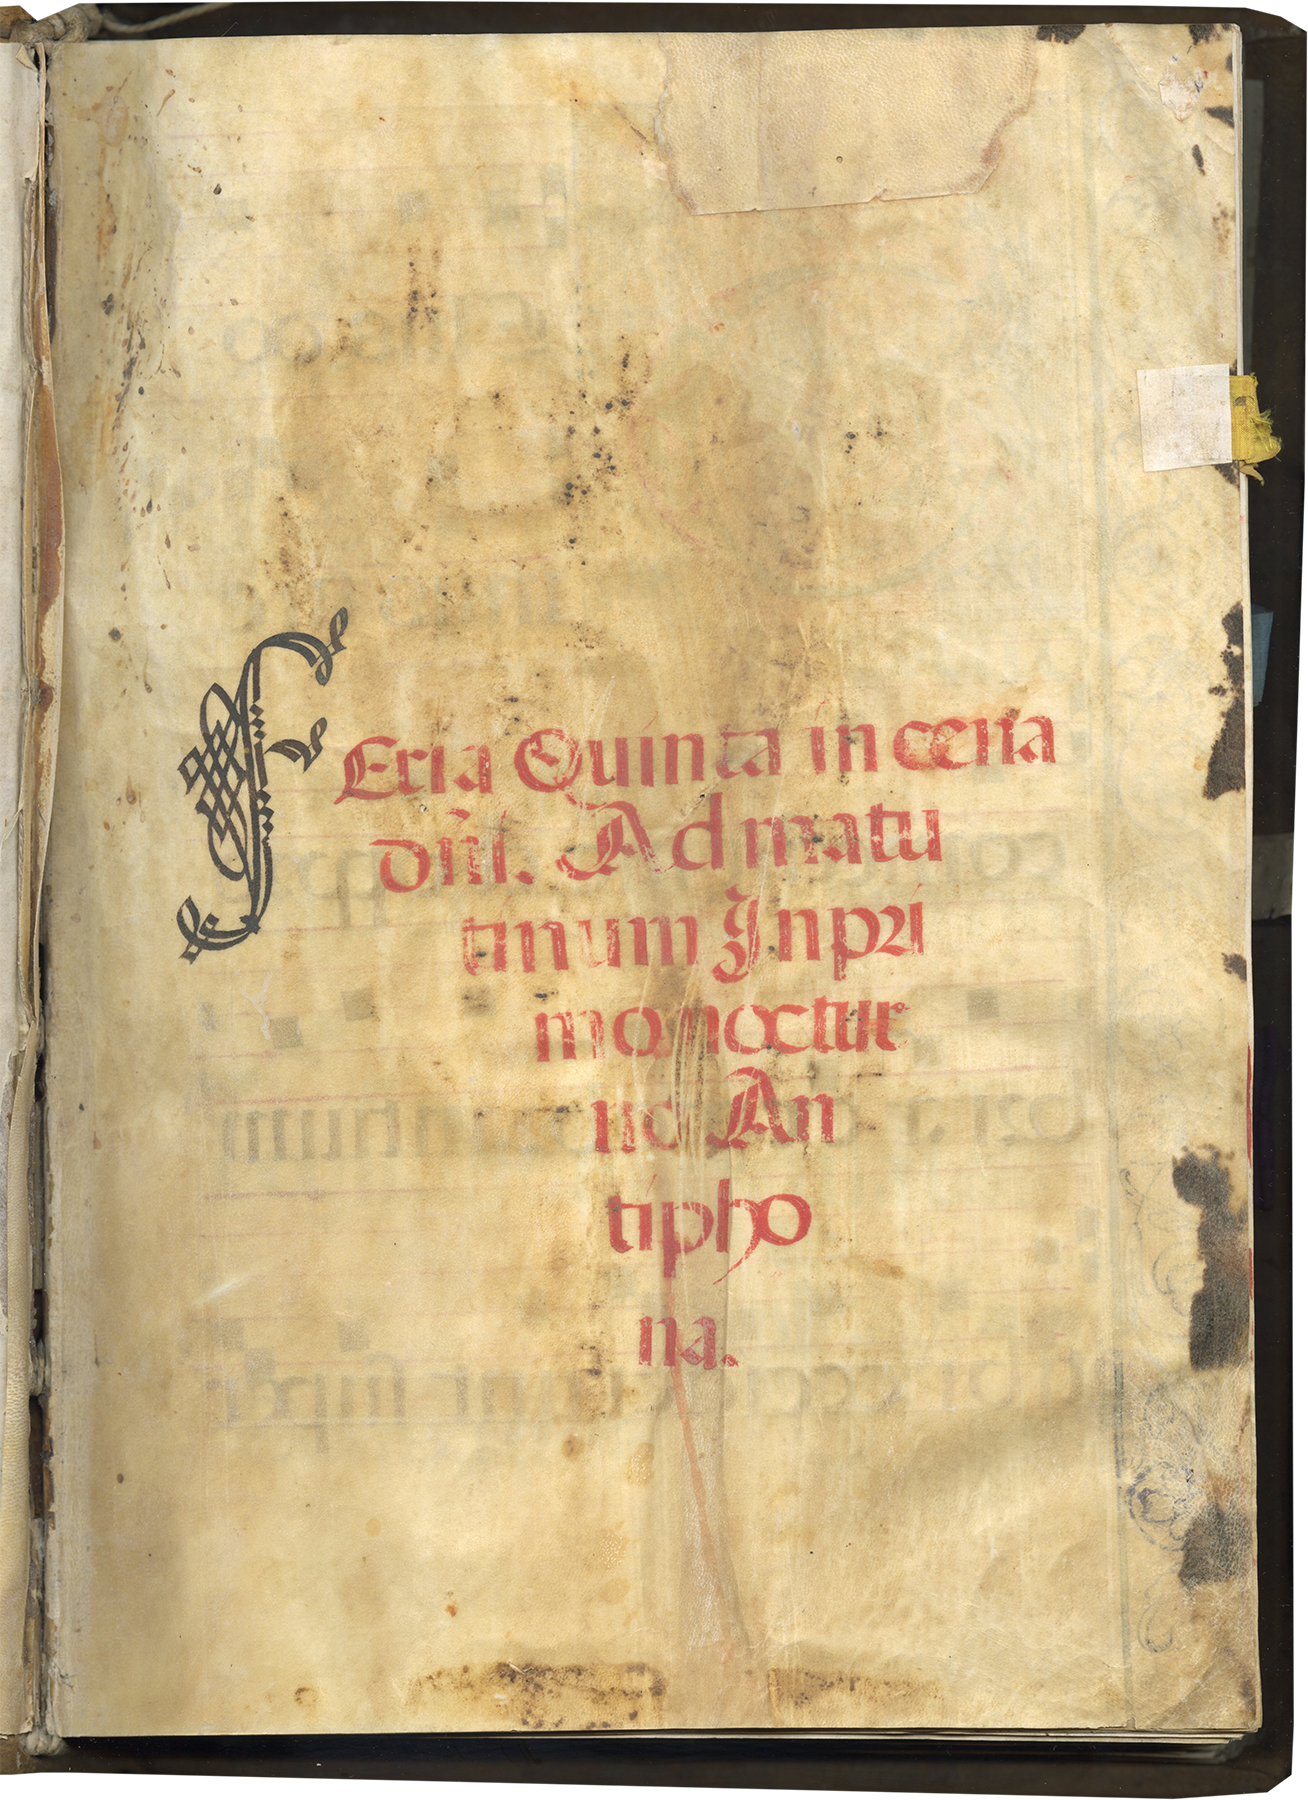 FEria Quinta in cena
dñi. Ad matu
tinum In pri
mo noctur
no An
tipho
na.